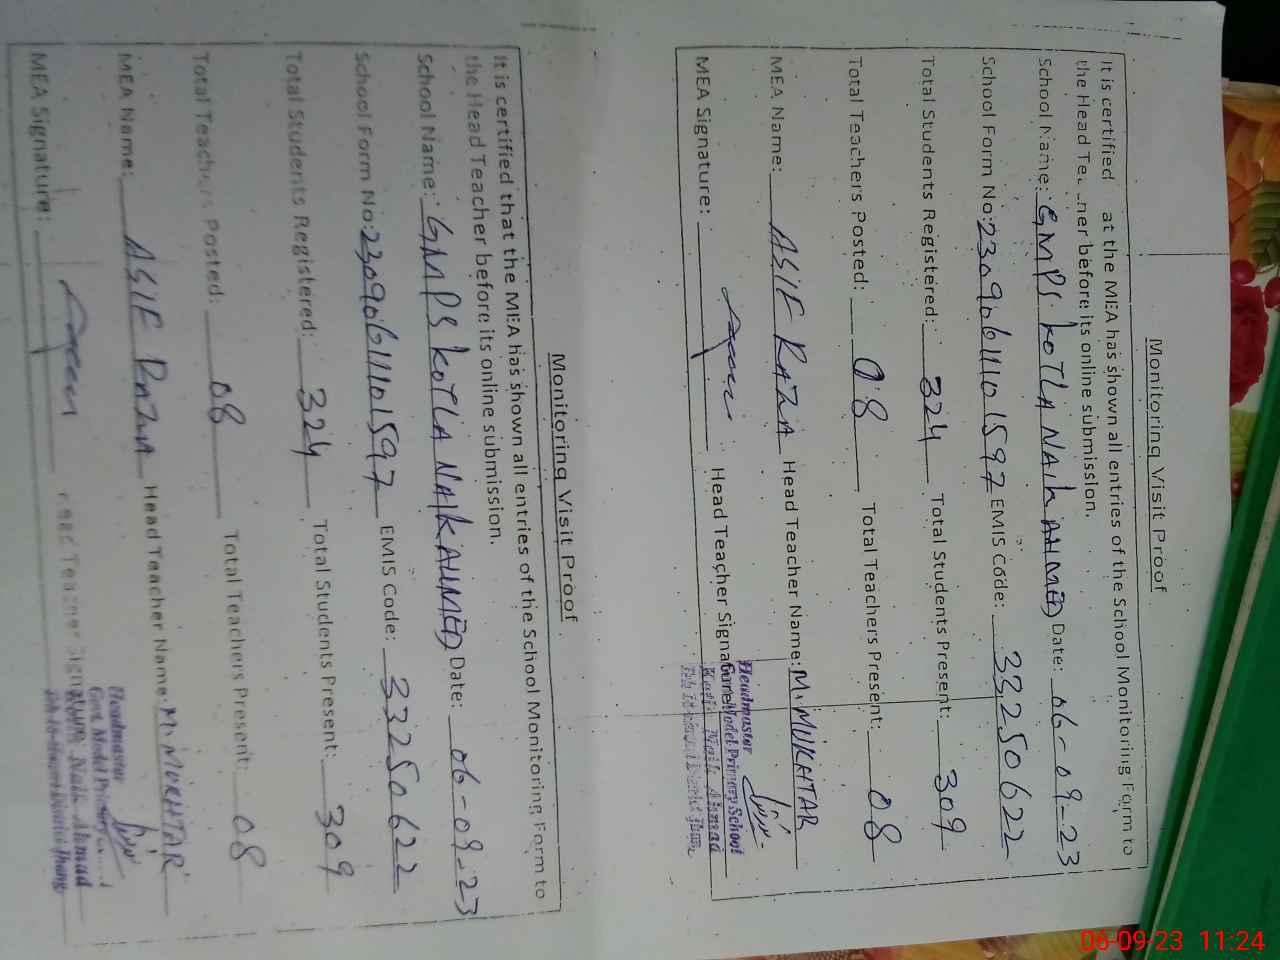 Monitoring Visit Proof
It is certified at the MEA has shown all entries of the School Monitoring Form to
the Head before its online submission.
School Name: GMPS KOTLA NAIK AHMED Date: 06-09-23
School Form No: 23090611101597 EMIS Code: 33250622
Total Students Registered: 324 Total Students Present: 309
Total Teachers Posted: 08 Total Teachers Present: 08
MEA Name: ASIF RAZA Head Teacher Name: M. MUKHTAR
MEA Signature: Head Teacher Signature
Headmaster
Govt. Model Primary School
Kotla Naik Ahmad
Monitoring Visit Proof
It is certified that the MEA has shown all entries of the School Monitoring Form to
the Head Teacher before its online submission.
School Name: GMPS KOTLA NAIK AHMED Date: 06-09-23
School Form No: 23090611101597 EMIS Code: 33250622
Total Students Registered: 324 Total Students Present: 309
Total Teachers Posted: 08 Total Teachers Present: 08
MEA Name: ASIF RAZA Head Teacher Name: M. MUKHTAR
MEA Signature: Head Teacher
Headmaster
Govt. Model
Kotla Naik Ahmad
06-09-23 11:24